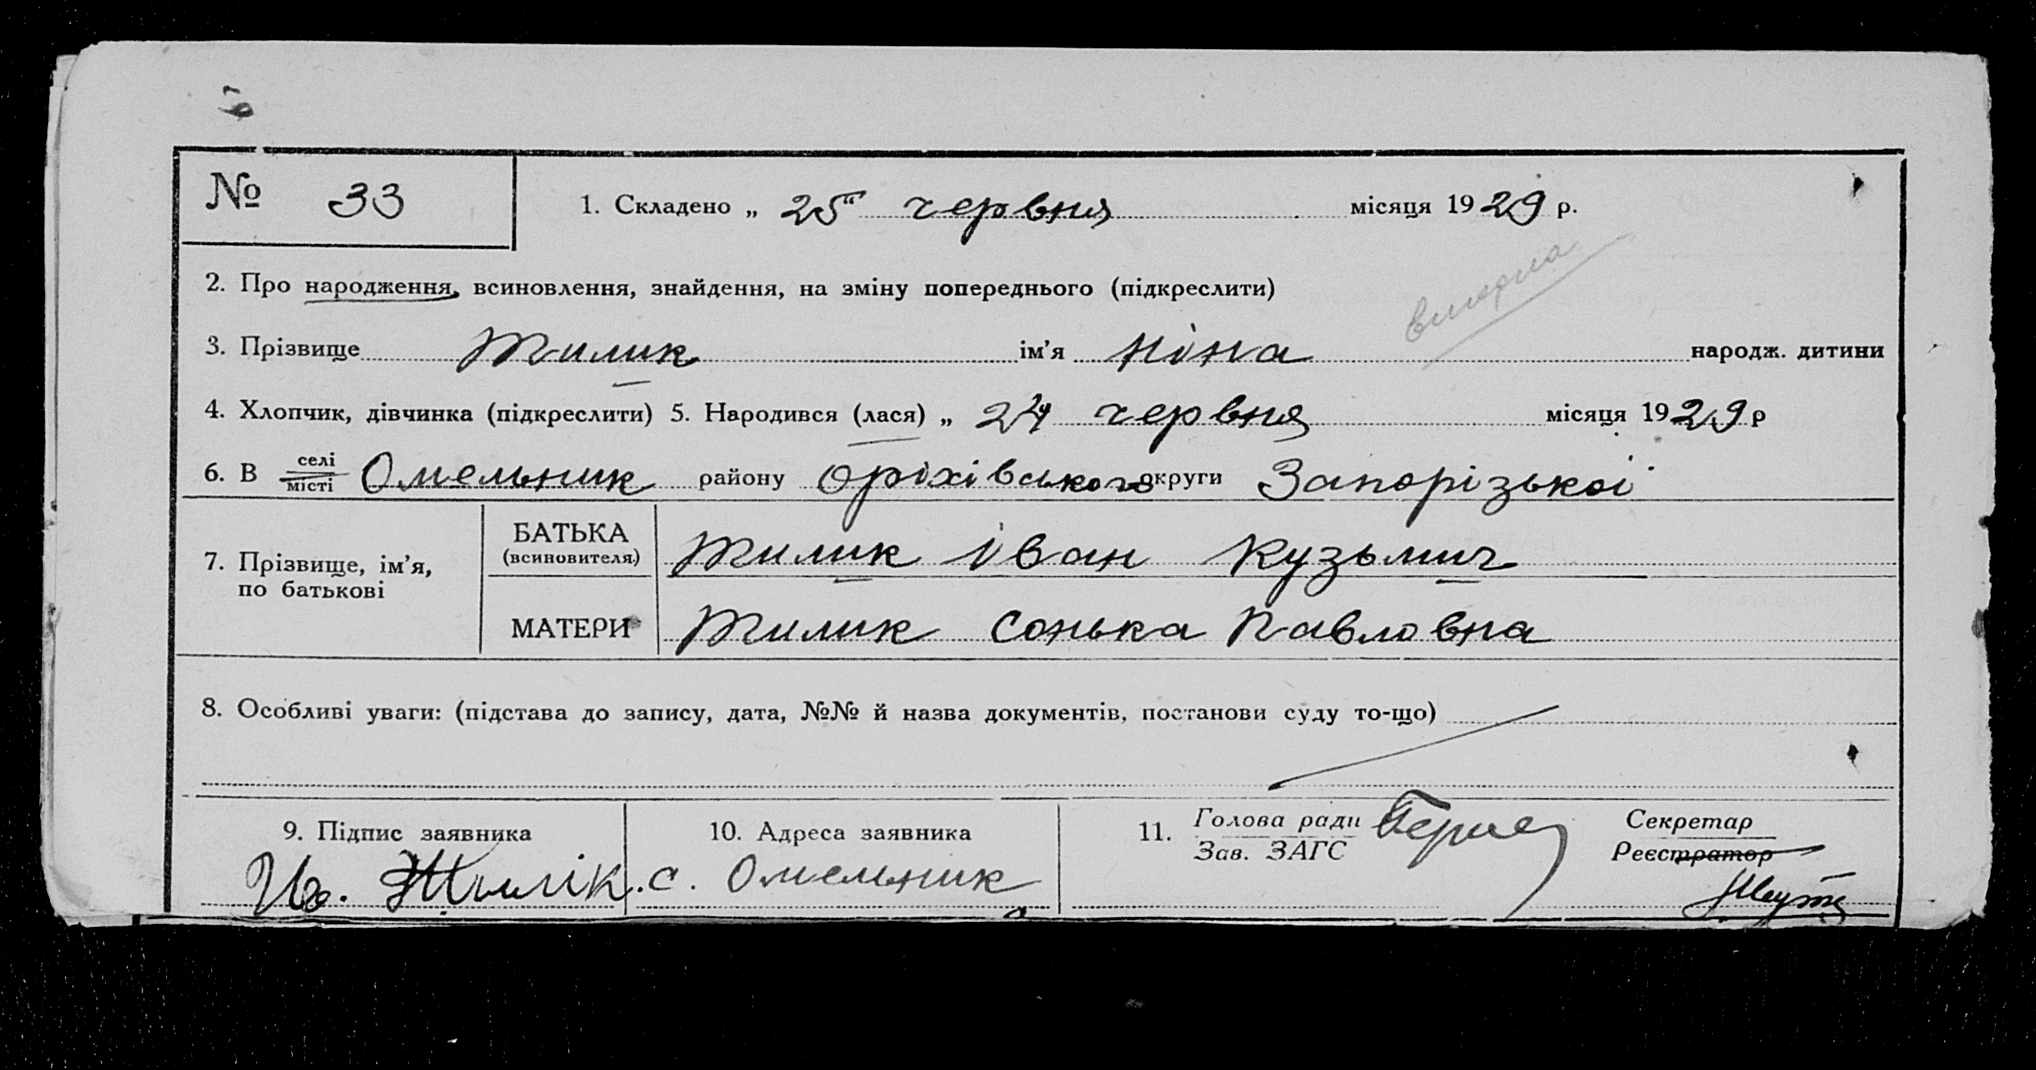 № 33
1. Складено „ 25" червня місяця 1929 р.
2. Про народження, всиновлення, знайдення, на зміну попереднього (підкреслити)
вмерла
3. Прізвище Жилик ім'я Ніна народж. дитини
4. Хлопчик, дівчинка (підкреслити) 5. Народився (лася) „ 24 червня місяця 1929 р
6. В селі місті Омельник району Оріхівського округи Запорізькоі
7. Прізвище, ім'я, по батькові
БАТЬКА (всиновителя) Жилик Іван Кузьмич
МАТЕРИ Жилик Сонька Павловна
8. Особливі уваги: (підстава до запису, дата, №№ й назва документів, постанови суду то-що)
9. Підпис заявника
Ив. Жилік.
10. Адреса заявника
с. Омельник
11. Голова ради
Зав. ЗАГС
Секретар
Реєстратор